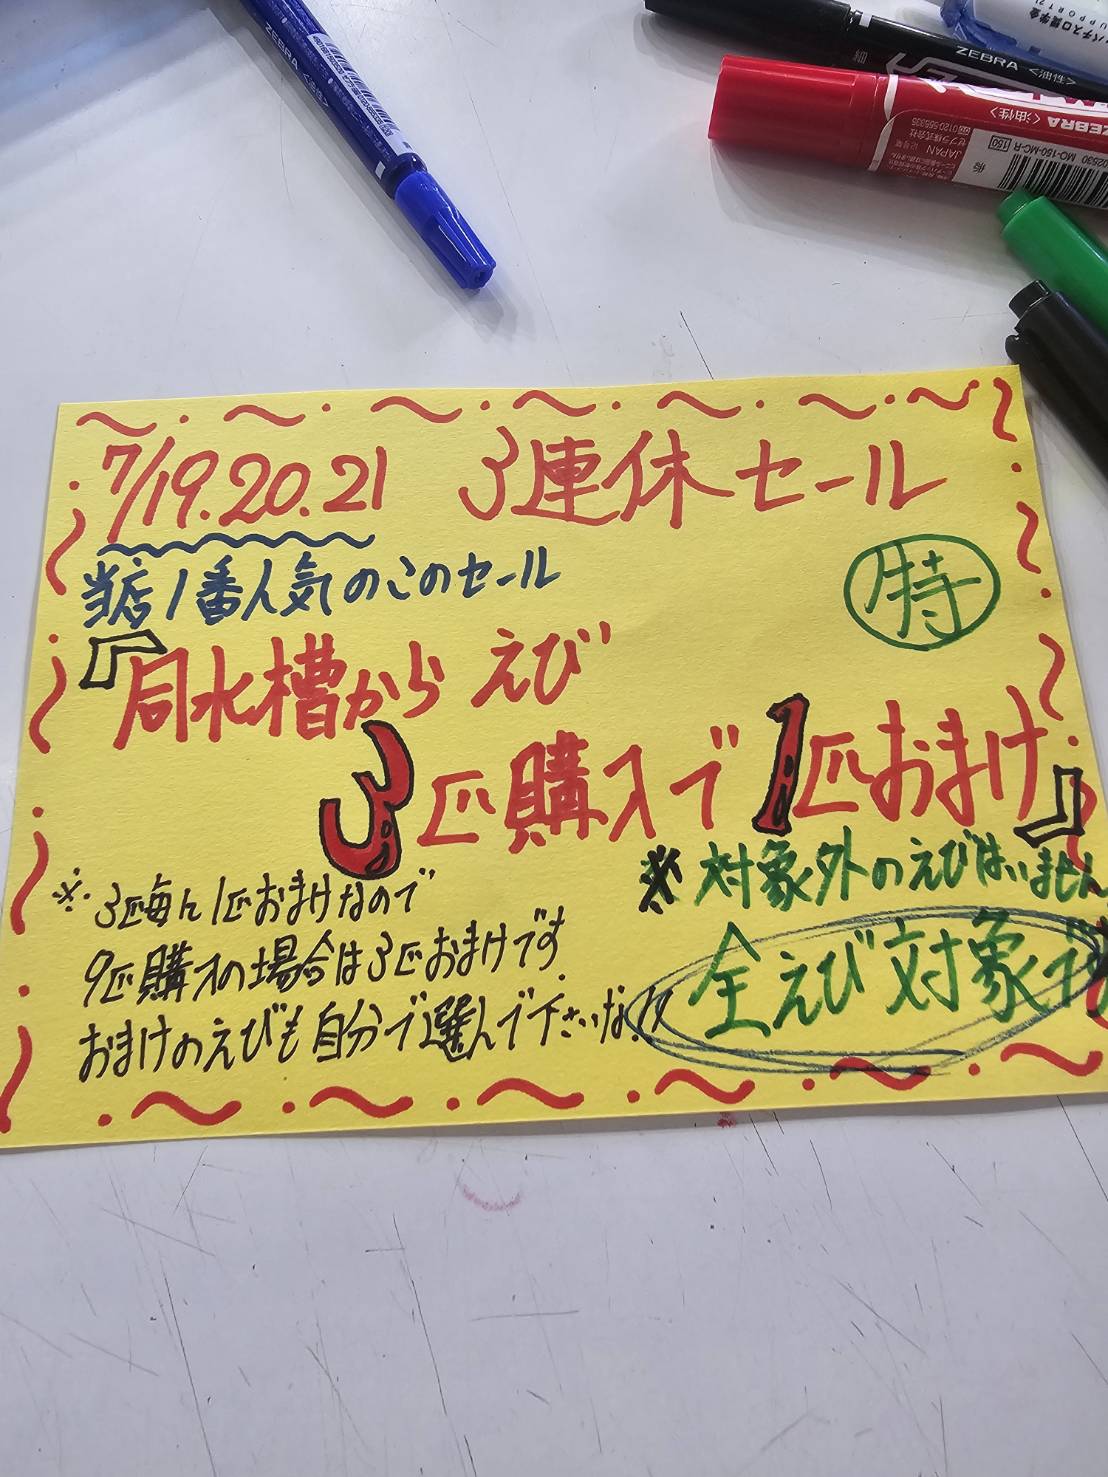 ZEBRA
ZEBRA <油性>
ZEBRA <油性>
ゼブラ株式会社
JAPAN
MO-150-MC-R
150
7/19.20.21 3連休セール
当店1番人気のこのセール
特
『同水槽から えび
3匹購入で 1匹おまけ』
※3匹毎に1匹おまけなので
9匹購入の場合は3匹おまけです.
おまけのえびも自分で選んで下さいな!!
※対象外のえびはいません
全えび対象で